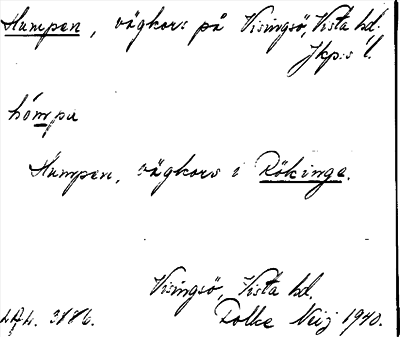 Humpen, vägkors på Visingsö, Vista hd.
Jkp:s l.
hómpa
Humpen, vägkors i Rökinge.
Visingsö, Vista hd.
Folke Neij 1940.